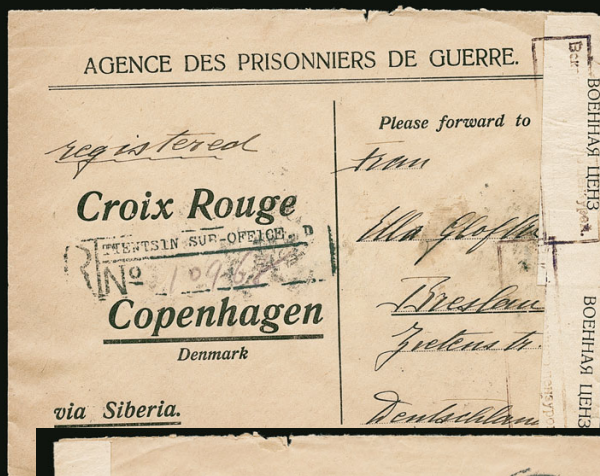 AGENCE DES PRISONNIERS DE GUERRE.
registered
Croix Rouge
TIENTSIN SUB-OFFICE. D
R No
Copenhagen
Denmark
via Siberia.
Please forward to
Frau
Ella
Breslau
Zietenstr.
Deutschland
ВОЕННАЯ ЦЕНЗ
ВОЕННАЯ ЦЕНЗ